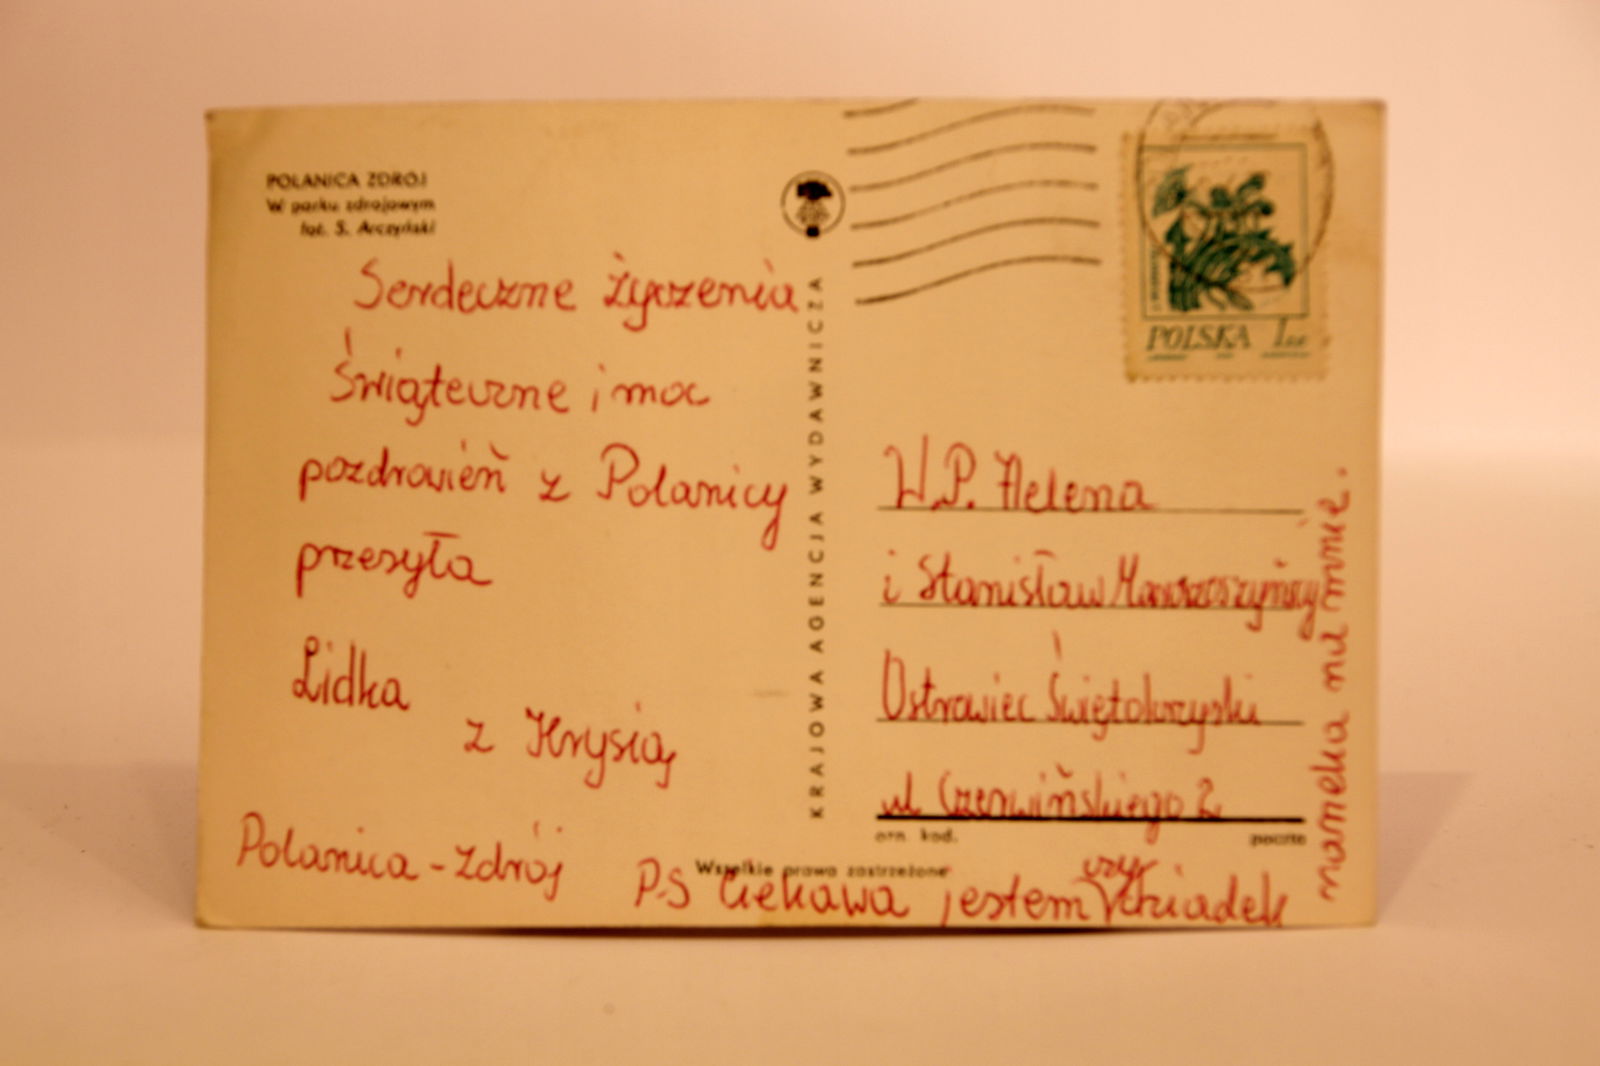 POLANICA ZDRÓJ
W parku zdrojowym
fot. S. Arczyński
Serdeczne życzenia
Świąteczne i moc
pozdrowień z Polanicy
przesyła
Lidka
z Krysią
Polanica-Zdrój
PS Ciekawa jestem czy dziadek
nameka na mnie.
KRAJOWA AGENCJA WYDAWNICZA
POLSKA 1
W.P. Helena
i Stanisław
Ostrowiec Świętokrzyski
ul Czerwińskiego 2
ozn. kod. poczta
Wszelkie prawa zastrzeżone